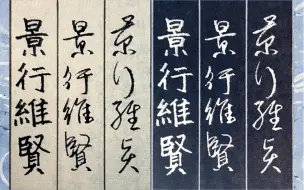 景行維賢
景行維賢
景行維賢
景行維賢
景行維賢
景行維賢